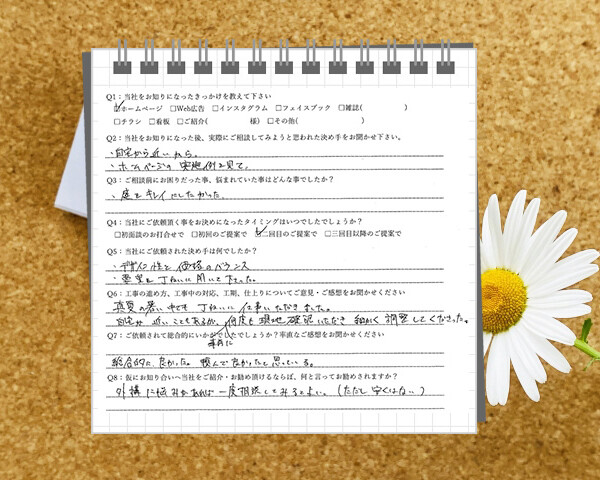 Q1：当社をお知りになったきっかけを教えて下さい
☑ホームページ □Web広告 □インスタグラム □フェイスブック □雑誌( )
□チラシ □看板 □ご紹介( 様) □その他( )
Q2：当社をお知りになった後、実際にご相談してみようと思われた決め手をお聞かせ下さい。
・自宅から近いから。
・ホームページの実施例を見て。
Q3：ご相談前にお困りだった事、悩まれていた事はどんな事でしたか？
・庭をキレイにしたかった。
Q4：当社にご依頼頂く事をお決めになったタイミングはいつでしたでしょうか？
□初面談のお打合せで □初回のご提案で ☑二回目のご提案で □三回目以降のご提案で
Q5：当社にご依頼された決め手は何でしたか？
・デザイン性と価格のバランス
・要望を丁ねいに聞いて下さった。
Q6：工事の進め方、工事中の対応、工期、仕上りについてご意見・ご感想をお聞かせください
真夏の暑い中でも丁ねいに仕事いただきました。
自宅が近いこともあるが、何度も現地確認いただき細かく調整してくださった。
Q7：ご依頼されて総合的にいかがでしたでしょうか？率直なご感想をお聞かせください
総合的に良かった。頼んで良かったと思っている。
Q8：仮にお知り合いへ当社をご紹介・お勧め頂けるならば、何と言ってお勧めされますか？
外構に悩みがあれば一度相談してみるとよい。(ただし安くはない)